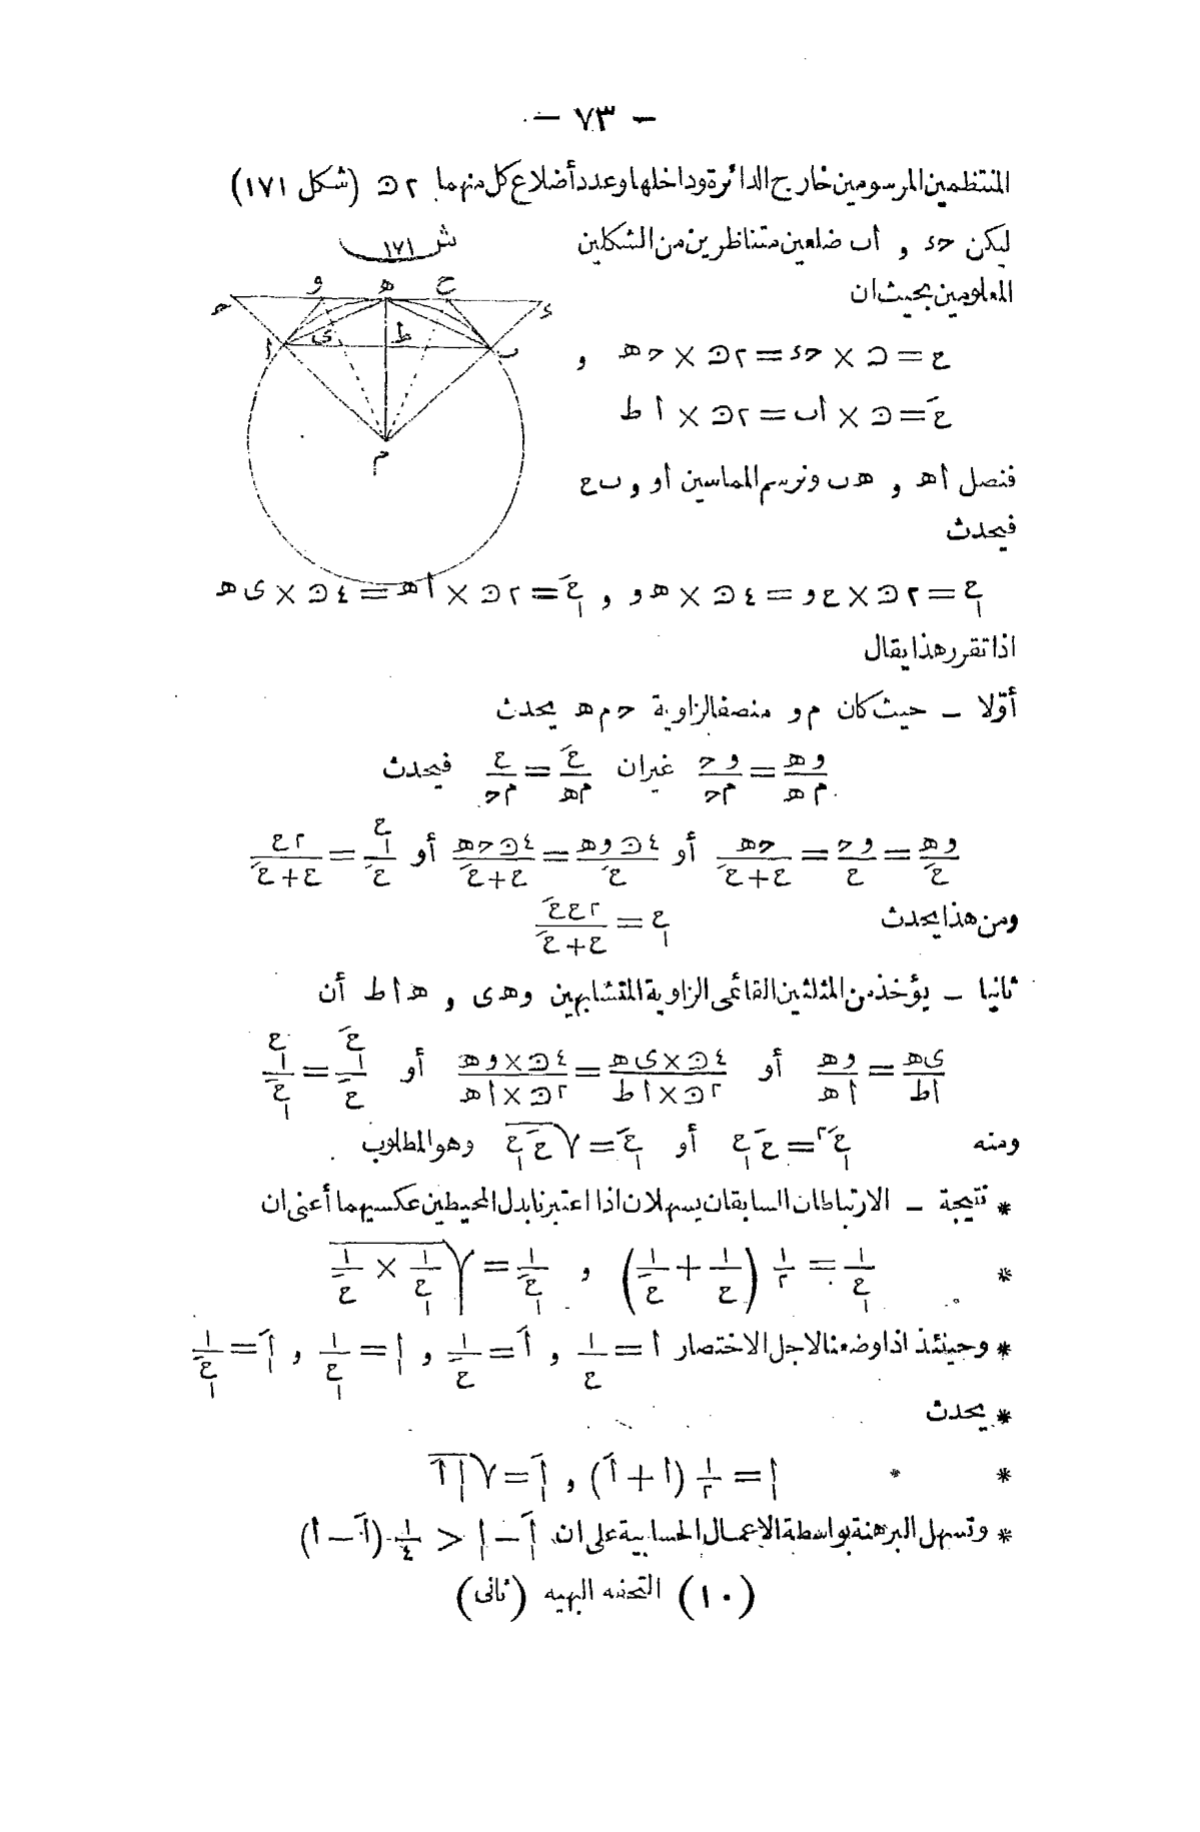 — ٧٣ —
المنتظمين المرسومين خارج الدائرة وداخلها وعدد أضلاع كل منهما ٢ﮞ (شكل ١٧١)
ليكن حء و أب ضلعين متناظرين من الشكلين
المعلومين بحيث ان
ش ١٧١
ح و ه ع ء
ا ى ط ب
م
ع = ﮞ × حء = ٢ﮞ × حه و
عَ = ﮞ × أب = ٢ﮞ × أط
فنصل أه و هب ونرسم المماسين أو و بع
فيحدث
ع١ = ٢ﮞ × عو = ٤ﮞ × هو و عَ١ = ٢ﮞ × أه = ٤ﮞ × ىه
اذا تقرر هذا يقال
أوّلا — حيث كان مو منصفا لزاوية حمه يحدث
وه/مه = وح/مح غيران عَ/مه = ع/مح فيحدث
وه/عَ = وح/ع = حه/(ع+عَ) أو ٤ﮞوه/عَ = ٤ﮞحه/(ع+عَ) أو ع١/عَ = ٢ع/(ع+عَ)
ومن هذا يحدث ع١ = ٢ععَ/(ع+عَ)
ثانيا — يؤخذ من المثلثين القائمى الزاوية المتشابهين وهى و هاط أن
ىه/اط = وه/اه أو ٤ﮞ×ىه/٢ﮞ×اط = ٤ﮞ×وه/٢ﮞ×اه أو عَ١/عَ = ع١/عَ١
ومنه عَ١٢ = عَ ع١ أو عَ١ = √عَ ع١ وهو المطلوب
* نتيجة — الارتباطان السابقان يسهلان اذا اعتبرنا بدل المحيطين عكسيهما أعنى ان
* ١/ع١ = ١/٢ (١/ع + ١/عَ) و ١/عَ١ = √(١/ع١ × ١/عَ)
* وحينئذ اذا وضعنا لاجل الاختصار ا = ١/ع و اَ = ١/عَ و ا١ = ١/ع١ و اَ١ = ١/عَ١
* يحدث
* ا١ = ١/٢ (ا + اَ) و اَ١ = √ا١اَ
* وتسهل البرهنة بواسطة الاعمال الحسابية على ان اَ١ − ا١ < ١/٤ (اَ − ا)
(١٠) التحفه البهيه (ثانى)